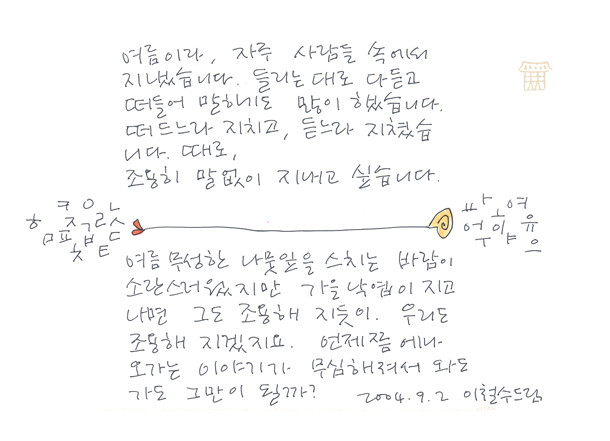 여름이라, 자주 사람들 속에서
지냈습니다. 들리는대로 다 듣고
떠들어 말하기도 많이 했습니다.
떠드느라 지치고, 듣느라 지쳤습
니다. 때로,
조용히 말없이 지내고 싶습니다.
여름 무성한 나뭇잎을 스치는 바람이
소란스러웠지만 가을 낙엽이 지고
나면 그도 조용해 지듯이. 우리도
조용해 지겠지요. 언제쯤에나
오가는 이야기가 무심해져서 와도
가도 그만이 될까? 2004.9.2 이철수드림